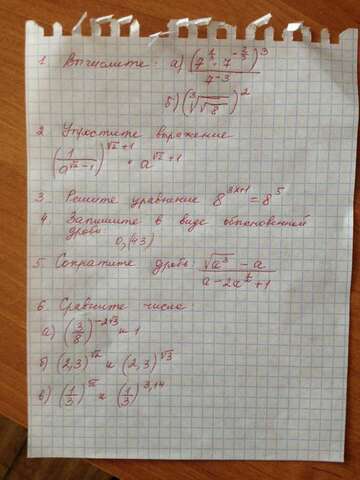 1 Вычислите: а) (7^(1/3) · 7^(-2/3))^3 / 7^(-3)
б) (∛√8)^2
2 Упростите выражение
(1/a^(√2-1))^(√2+1) · a^(√2+1)
3. Решите уравнение 8^(3x+1) = 8^5
4. Запишите в виде обыкновенной
дроби
0,(43)
5. Сократите дробь: (√a^3 - a) / (a - 2a^(1/2) + 1)
6 Сравните числа
а) (3/8)^(-2√3) и 1
б) (2,3)^√2 и (2,3)^√3
в) (1/3)^π и (1/3)^3,14